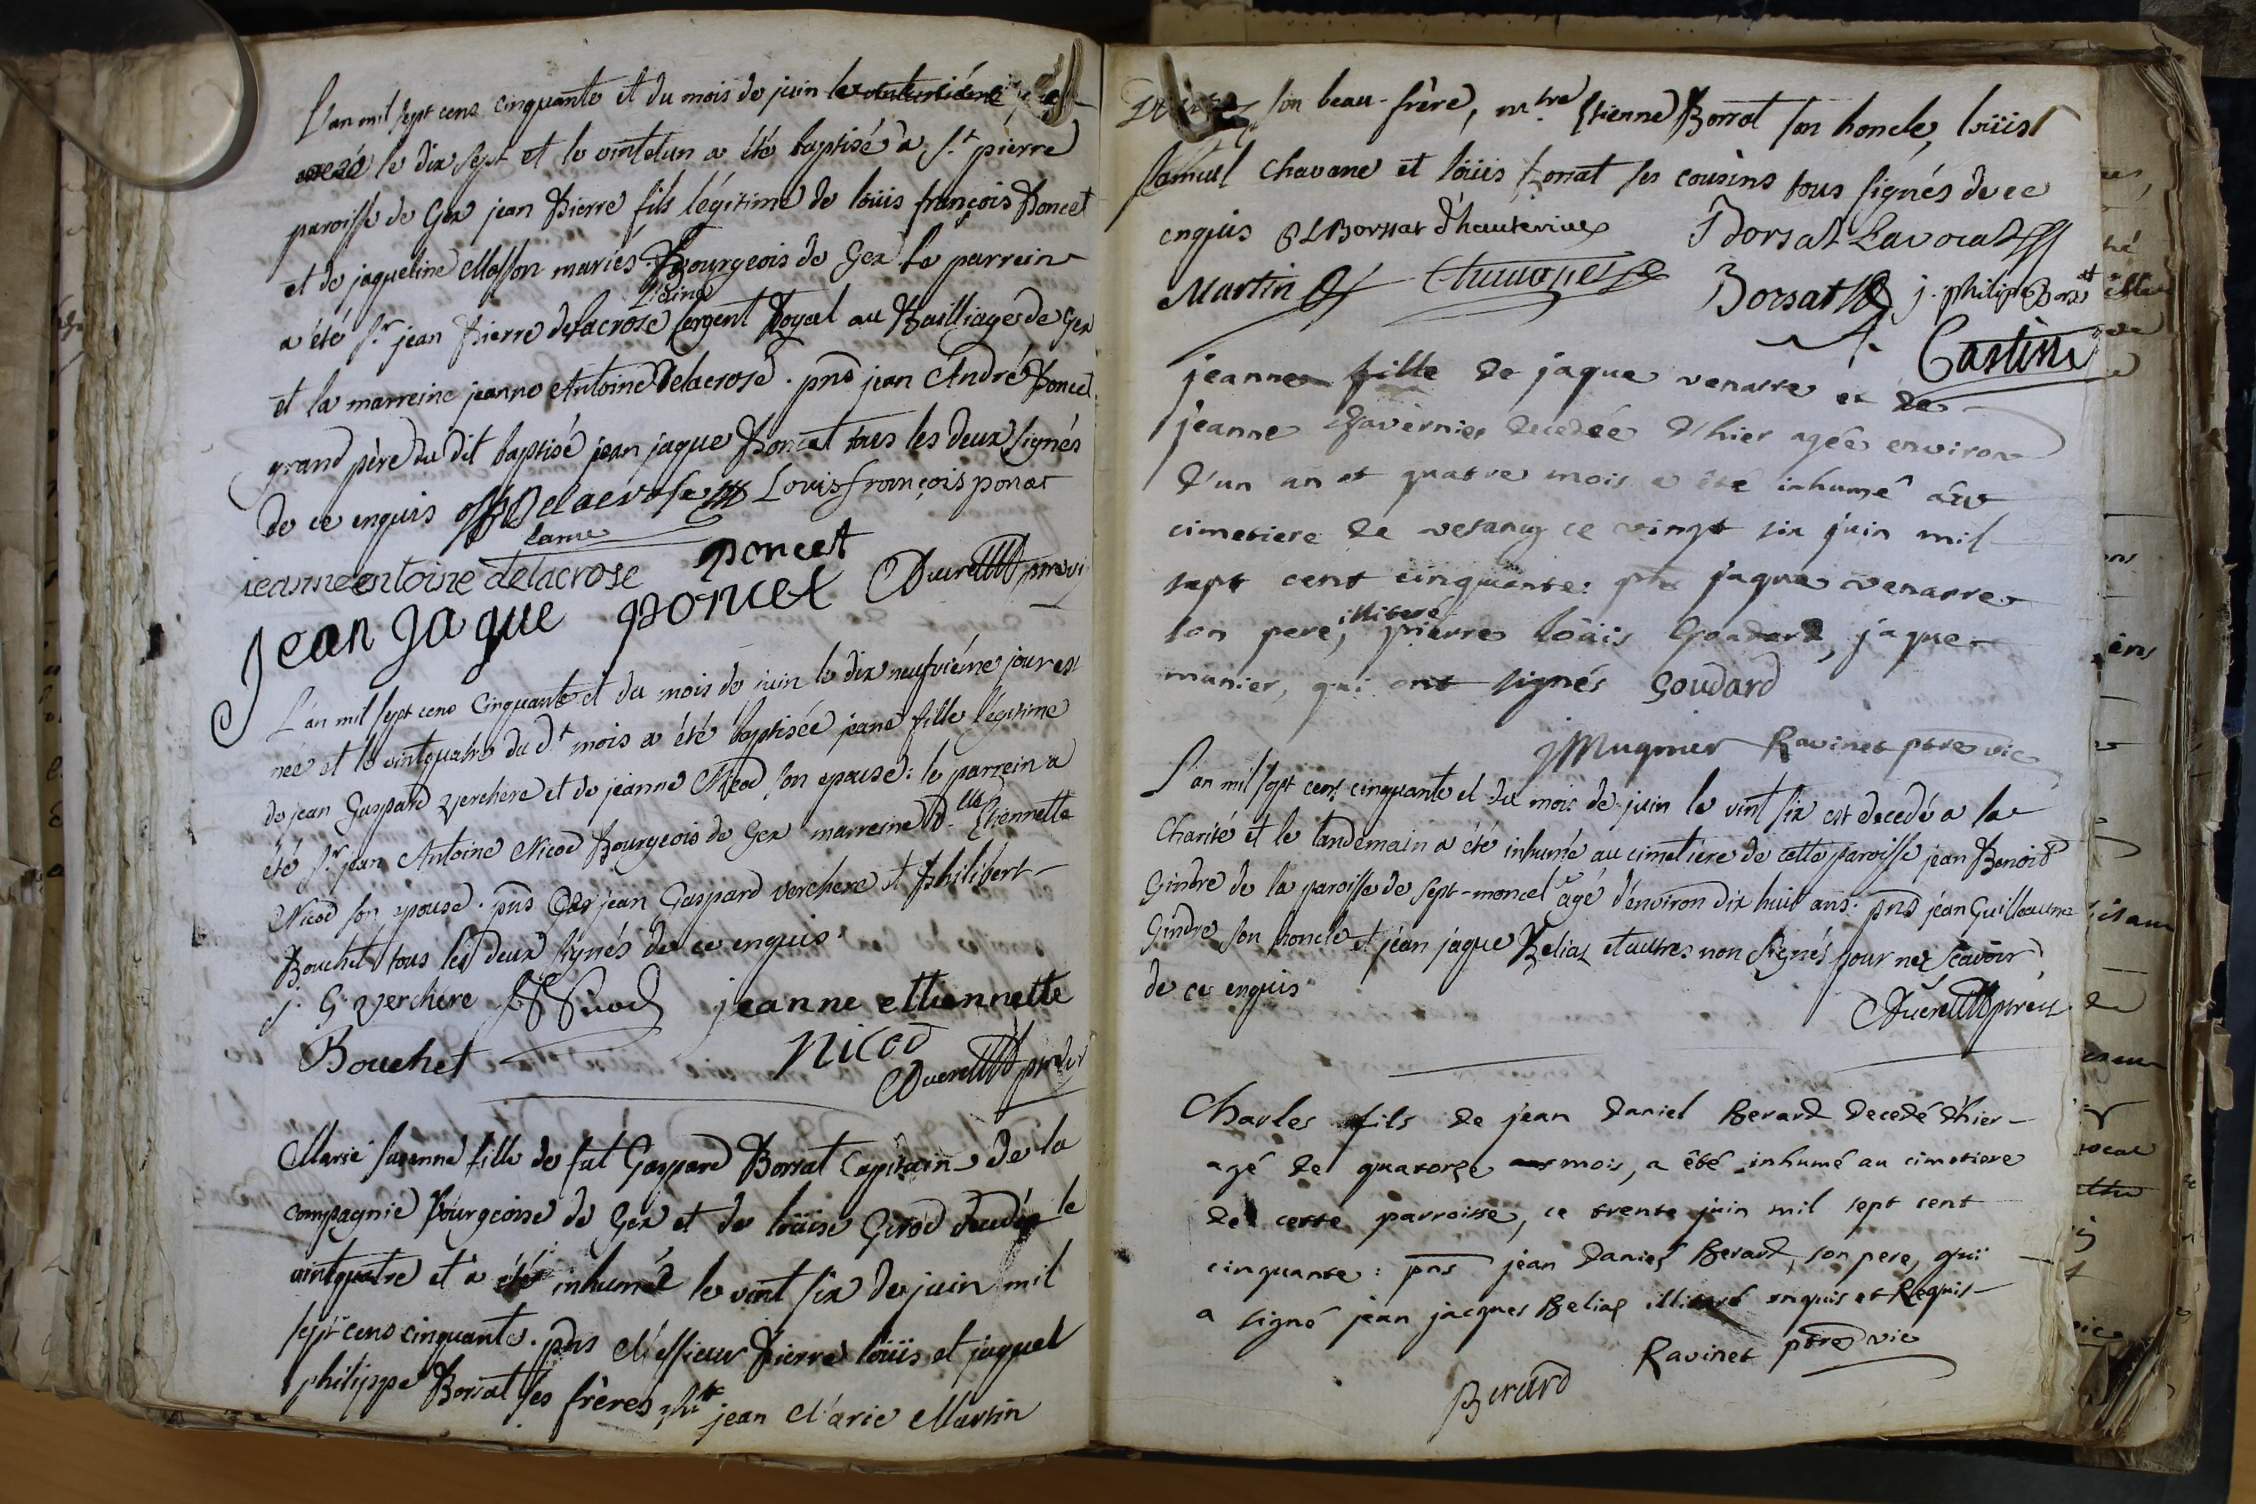 L'an mil sept cens cinquante et du mois de juin
le dix sept et le vintetun a été baptisé à St pierre
paroisse de Gex jean Pierre fils légitime de loüis françois Poncet
et de jaqueline Masson mariés Bourgeois de Gex le parrein
a été Sr jean Pierre delacrose l'aine sergent Royal au Bailliage de Gex
et la marreine jeanne Antoine Delacrose. pns jean André Poncet
grand père du dit baptisé jean jaque Poncet tous les deux signés
de ce enquis Delacrose Louis françois ponset
lainé
jeanne entoine delacrose poncet
Jean Jaque poncet
L'an mil sept cens Cinquante et du mois de juin le dix neufviéme jour est
née et le vintquatre du dt mois a été baptisée jeane fille légitime
de jean Gaspard verchere et de jeanne Nicod son epouse: le parrein a
été Sr jean Antoine Nicod Bourgeois de Gex marreine dlle Etiennette
Nicod son epouse. pns jean Gaspard verchere et Philibert
Bouchet tous les deux signés de ce enquis
j. G verchere Nicod jeanne ettiennette
Bouchet nicod
Marie susenne fille de fut Gaspard Borsat Capitain de la
compagnie Bourgeoise de Gex et de loüise Girod decedée le
vintquatre et a été inhumée le vint six de juin mil
sept cens cinquante. pns Messieur Pierre loüis et jaques
philippe Borsat ses frères jean Marie Martin
son beau-frère, mtre Etienne Borsat son honcle, loüis
samuel Chavane et loüis Borsat ses cousins tous signés de ce
enquis P L Borssat d'hauterive Borsat Lavocat
Martin Chavanes Borsat j. philipe Borsat
Castin
jeanne fille de jaque venarre et de
jeanne Tavernier decedée d'hier agée environ
d'un an et quatre mois a été inhumé au
cimetiere de vesancy ce vingt six juin mil
sept cent cinquente: pns jaque venarre
son pere, illiteré pierre loüis Goudard, jaque
munier, qui ont signés Goudard
J Mugnier Ravinet ptre vic
L'an mil sept cens cinquante et du mois de juin le vint six est decedé a la
Charité et le landemain a été inhumé au cimetiere de cette paroisse jean Benoit
Gindre de la paroisse de sept-moncel agé d'environ dix huit ans. pns jean Guilleaume
Gindre son honcle et jean jaque Beliaz et autres non signés pour ne sçavoir
de ce enquis
Charles fils de jean daniel Berard decedé d'hier
agé de quatorze mois, a été inhumé au cimetiere
de cette parroisse, ce trente juin mil sept cent
cinquante: pns jean daniel Berard, son pere, qui
a signé jean jacques Beliaz illiteré enquis et Requis
Ravinet ptre vic
Berard